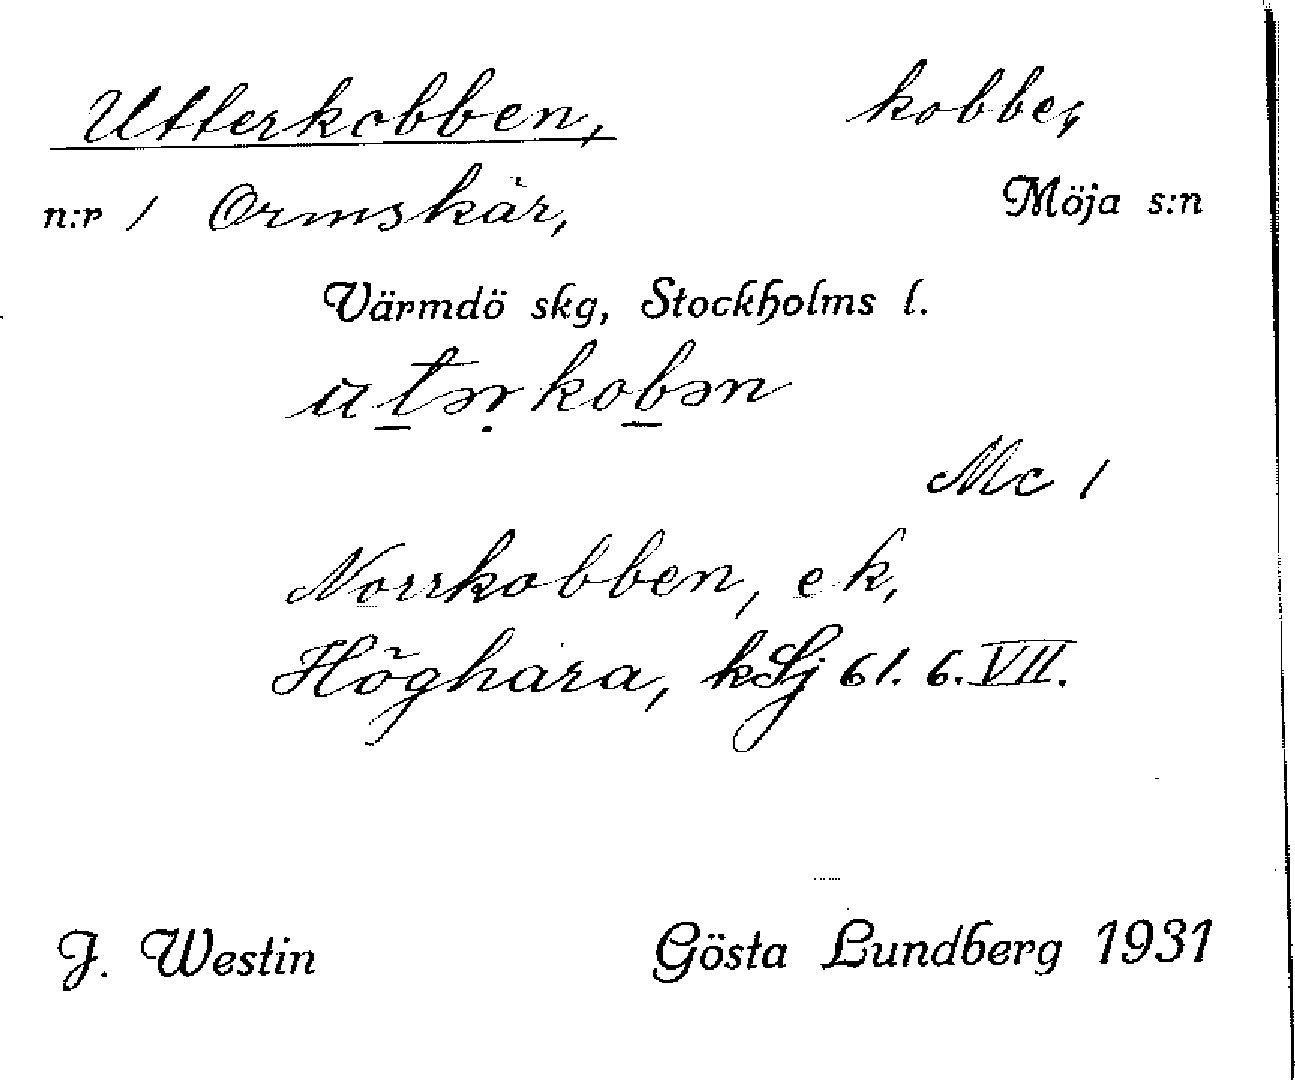 Utterkobben, kobbe,
n:r 1 Ormskär, Möja s:n
Värmdö skg, Stockholms l.
ut̲ərkob̲ən
Mc 1
Norrkobben, ek,
Höghara, kSj 61. 6. VII.
J. Westin Gösta Lundberg 1931